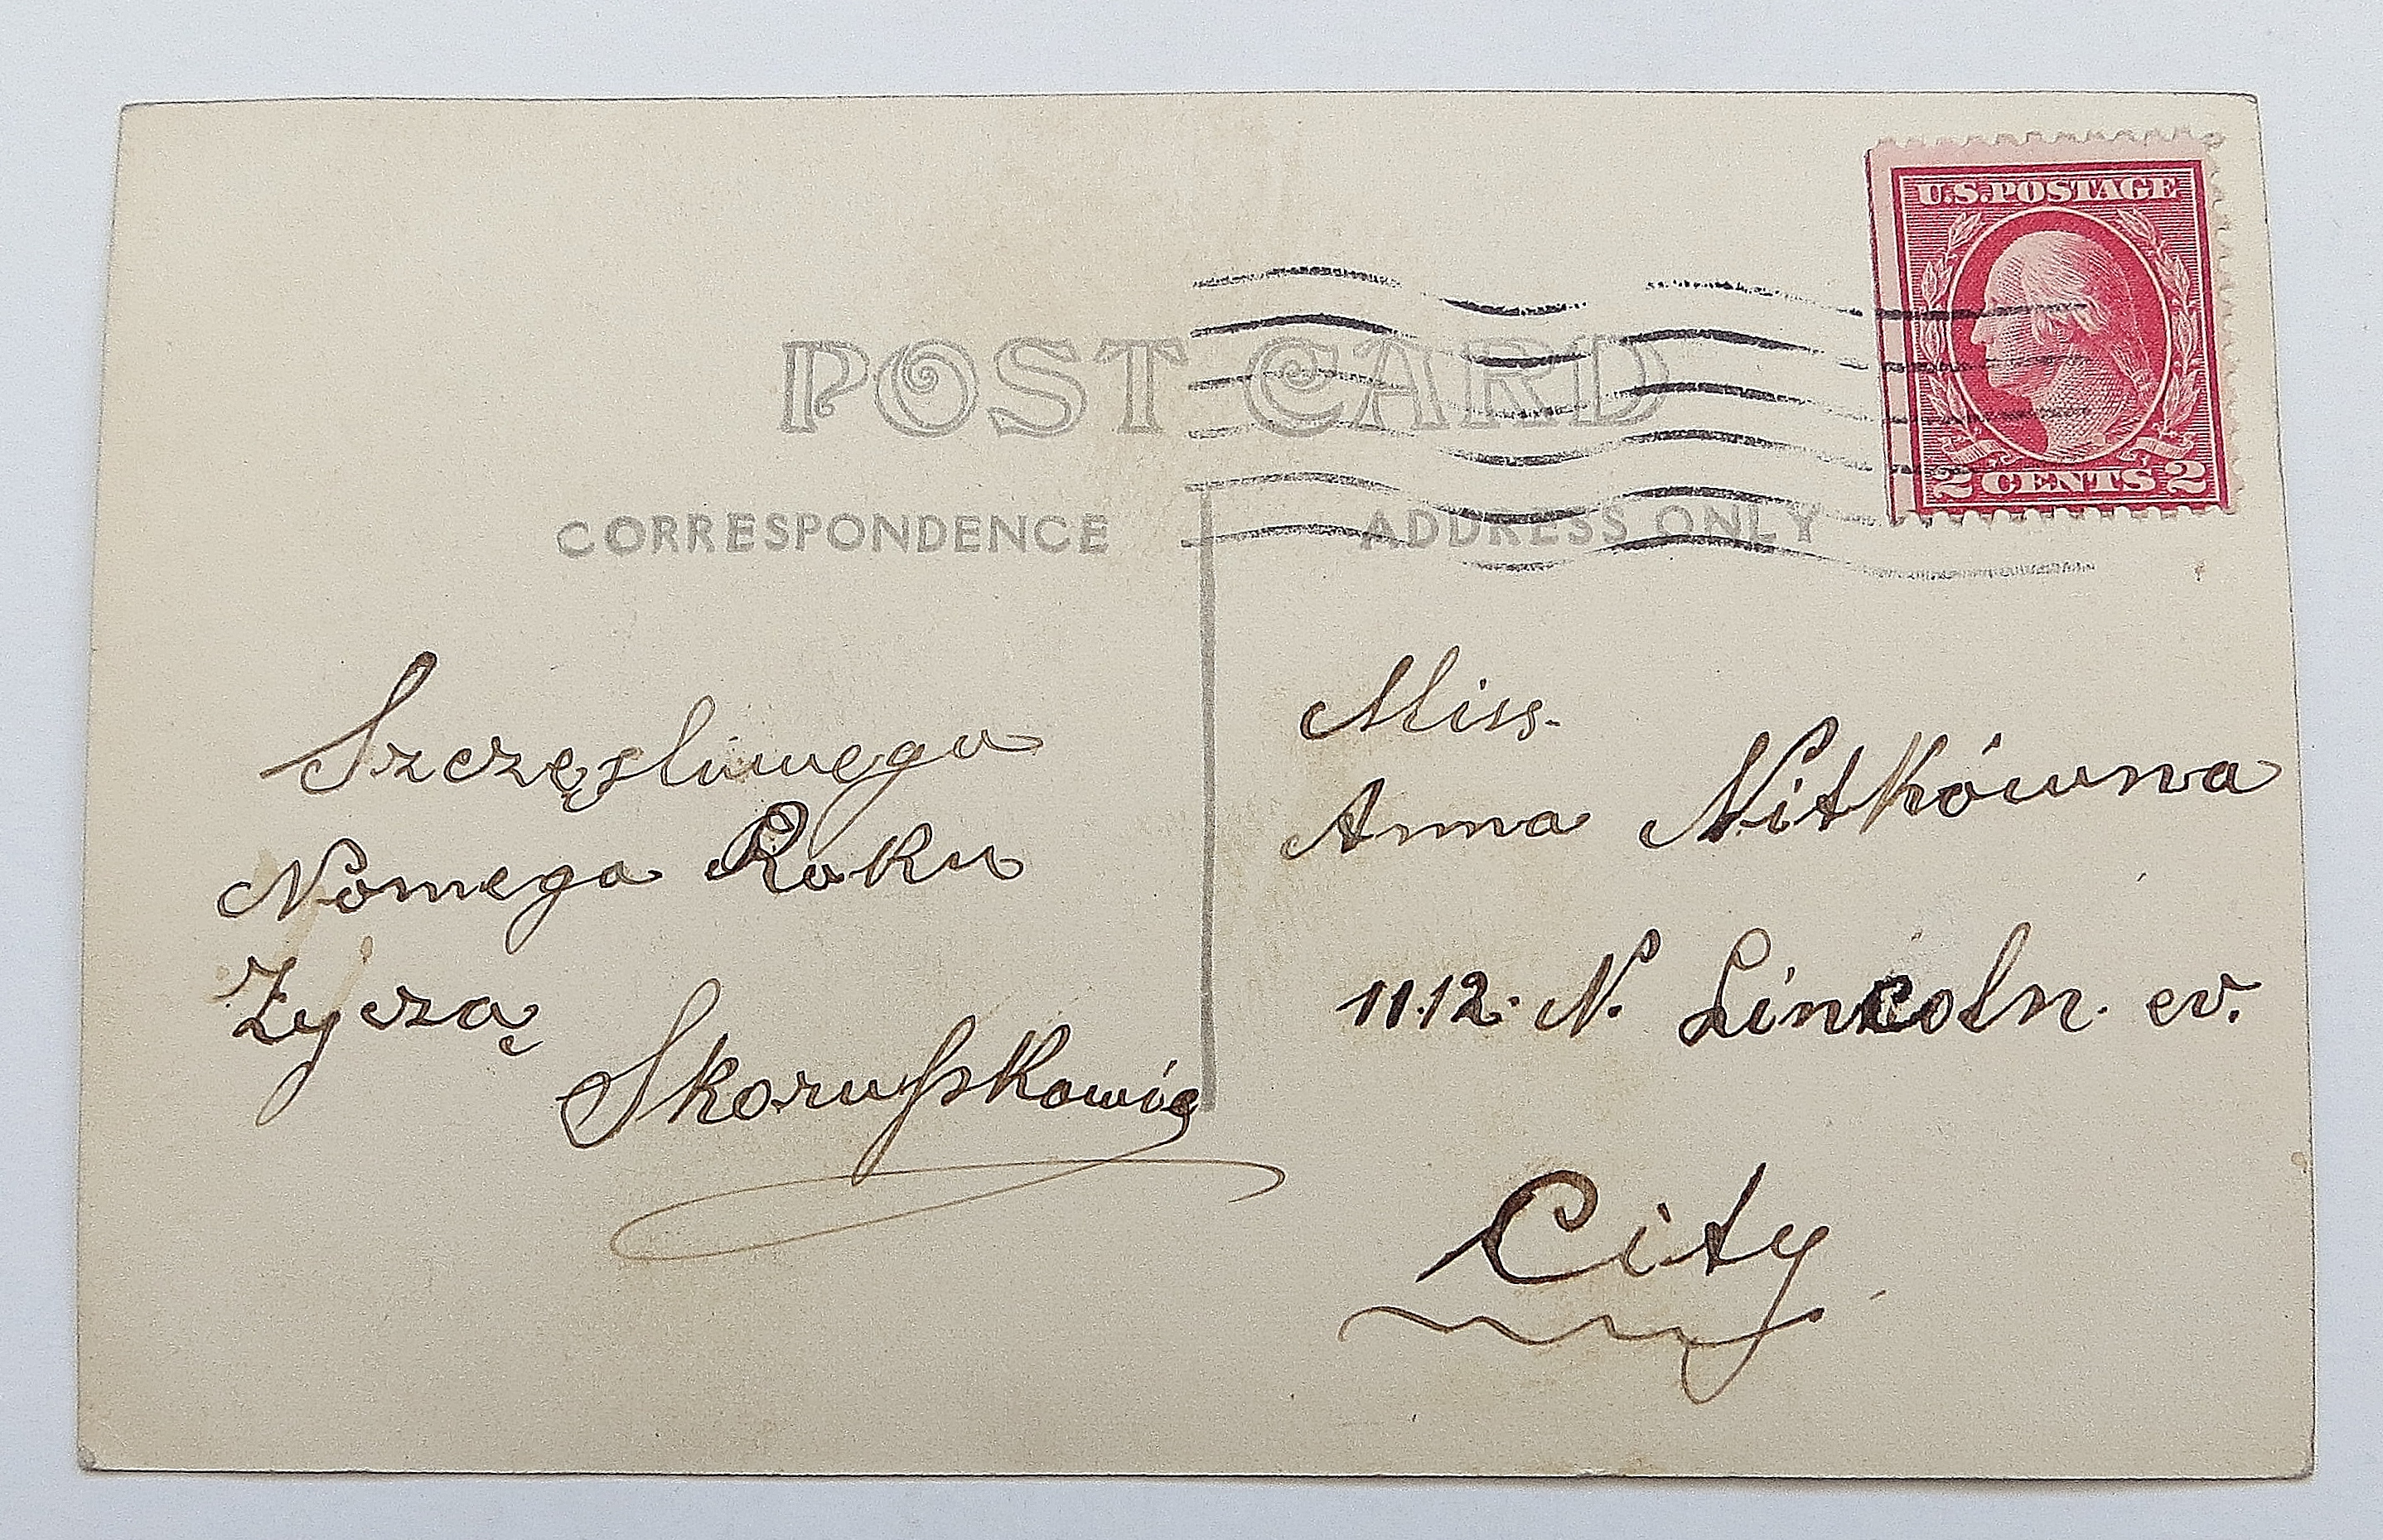 U.S. POSTAGE
2 CENTS 2
POST CARD
CORRESPONDENCE
ADDRESS ONLY
Szczęsliwego
Nowego Roku
Zyczą
Skorupskowie
Miss.
Anna Nitkówna
11.12. N. Lincoln. ev.
City